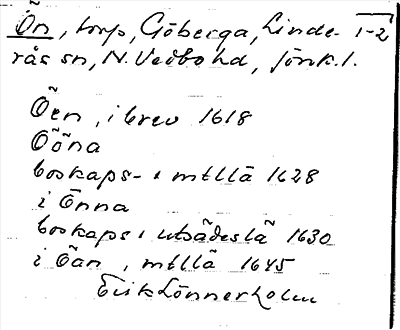 Ön, torp, Göberga, Linde- 1-2
rås sn, N. Vedbo hd, Jönk. l.
Õen, i brev 1618
Oõna
boskaps- i mtllã 1628
i Õnna
boskaps i utsädeslã 1630
i Õan, mtllã 1645
Erik Lönnerholm